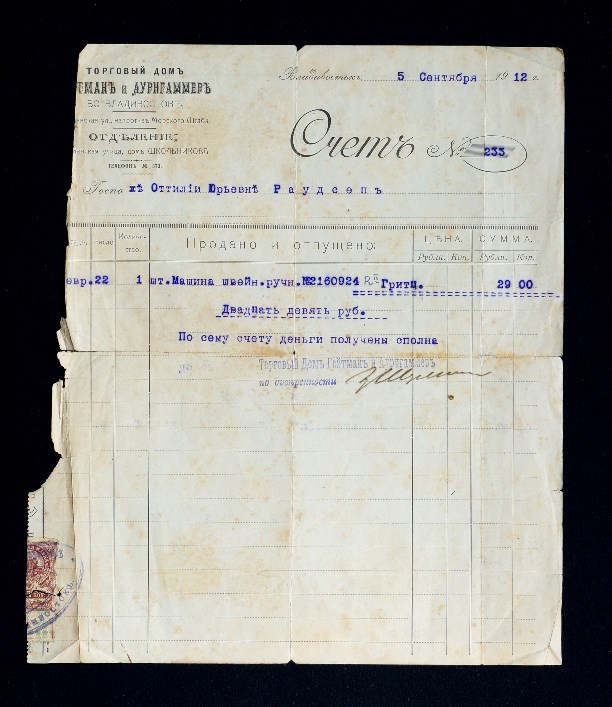 ТОРГОВЫЙ ДОМЪ
ТМАНЪ и АУРИГАММЕРЪ
ВО ВЛАДИВОСТОКѢ
ОТДѢЛЕНІЕ:
улица, домъ ШКОЛЬНИКОВЪ
Владивостокъ, 5 Сентября 1912 г.
Счетъ № 233
Госпожѣ Оттиліи Юрьевнѣ Раудсепъ
Продано и отпущено:
ЦѢНА. СУММА.
Рубли. Коп. Рубли. Коп.
евр.22 1 шт.Машина швейн.ручн.№2160924 Гритц. 29 00
Двадцать девять руб.
По сему счету деньги получены сполна
Торговый Домъ Гейтманъ и Ауригаммеръ
по довѣренности